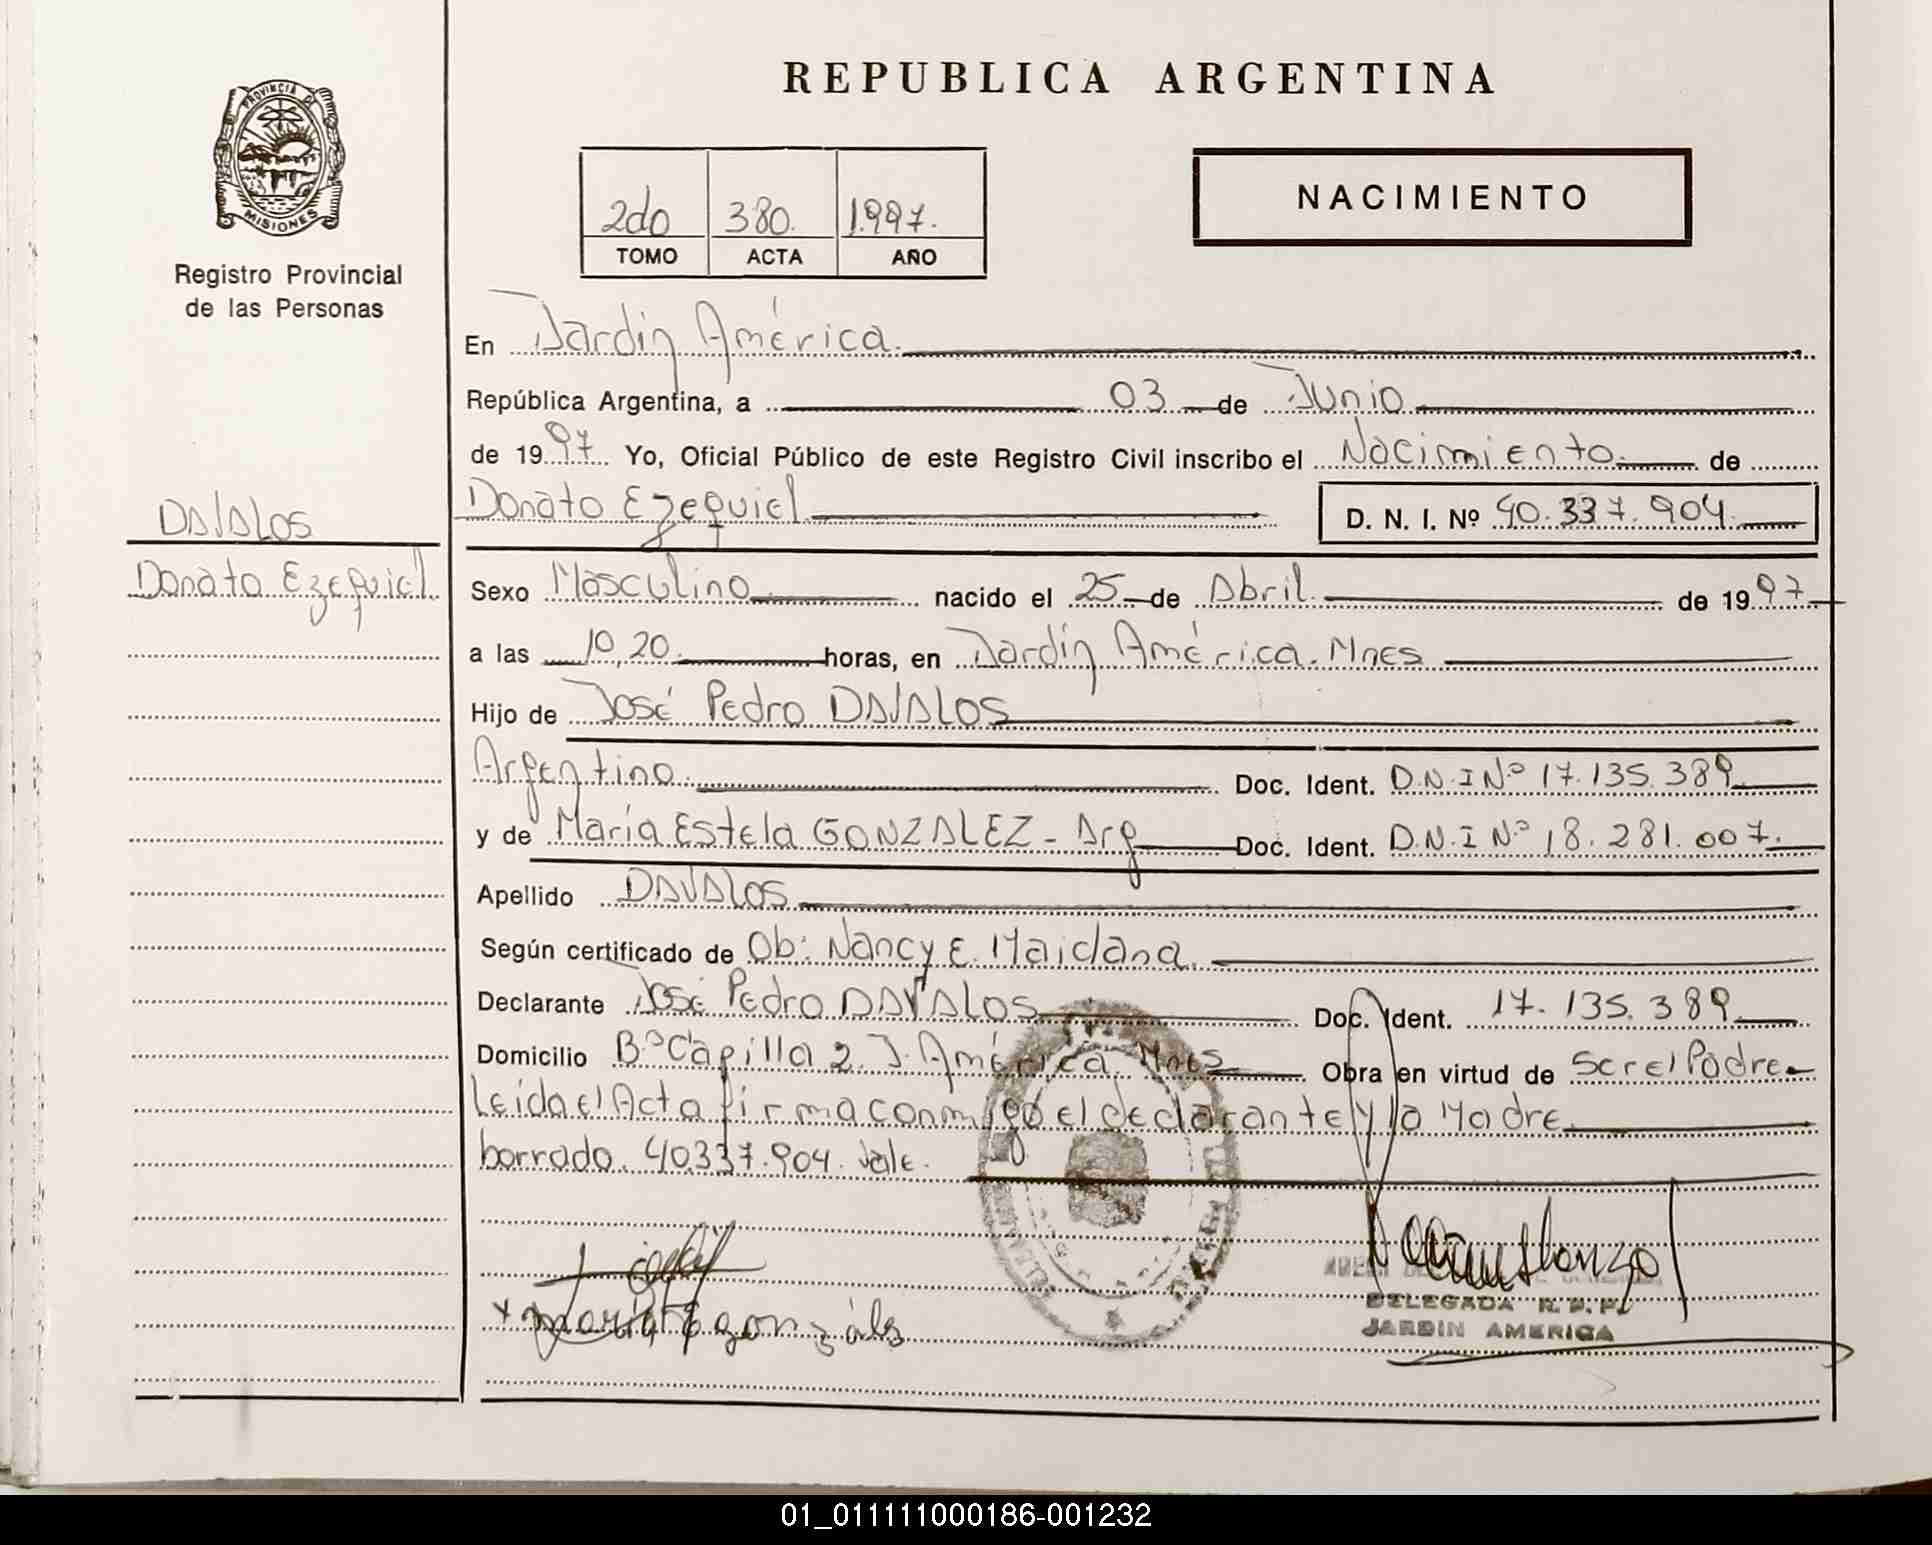 REPUBLICA ARGENTINA
PROVINCIA DE
MISIONES
Registro Provincial
de las Personas
2do 380. 1.997.
TOMO ACTA AÑO
NACIMIENTO
En Jardín América.
República Argentina, a 03 de Junio
de 1997 Yo, Oficial Público de este Registro Civil inscribo el Nacimiento de
Donato Ezequiel D. N. I. Nº 40.337.904.
DAVALOS
Donato Ezequiel
Sexo Masculino nacido el 25 de Abril de 1997
a las 10,20 horas, en Jardín América. Mnes
Hijo de José Pedro DAVALOS
Argentino. Doc. Ident. D.N.I Nº 17.135.389
y de María Estela GONZALEZ - Arg Doc. Ident. D.N.I Nº 18.281.007.
Apellido DAVALOS
Según certificado de Ob: Nancy E. Maidana.
Declarante José Pedro DAVALOS Doc. Ident. 17.135.389
Domicilio Bº Capilla 2. J. América. Mnes Obra en virtud de Ser el Padre
Leida el Acta firma conmigo el declarante y la Madre
borrado. 40.337.904. Vale.
DELEGADA R. P. P.
JARDIN AMERICA
x María E gonzáles
01_011111000186-001232